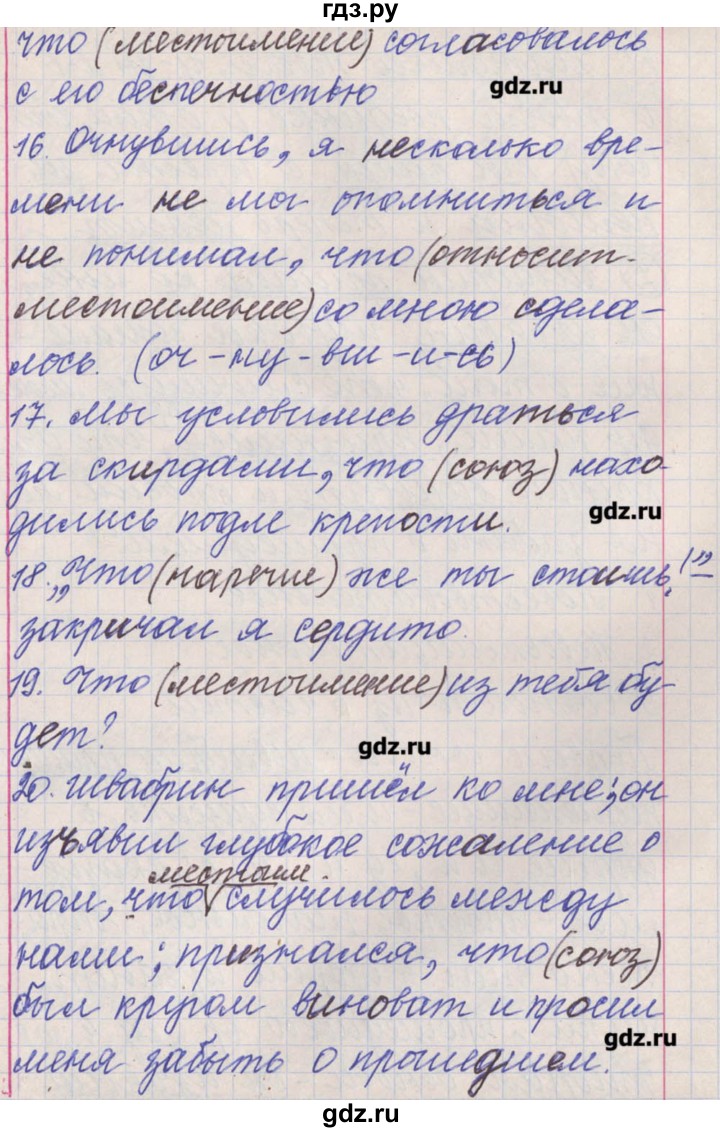 гдз.ру
что (местоимение) согласовалось
с его беспечностью
gdz.ru
16. Очнувшись, я несколько вре-
мени не мог опомниться и
не понимал, что (относит.
местоимение) со мною сдела-
лось. (оч-ну-вш-и-сь)
17. Мы условились драться
за скирдами, что (союз) нахо-
дились подле крепости.
gdz.ru
18. „Что (наречие) же ты стоишь, (!"
закричал я сердито.
19. Что (местоимение) из тебя бу-
дет?
gdz.ru
20. Швабрин пришёл ко мне; он
изъявил глубокое сожаление о
том, что местоим. случилось между
нами; признался, что (союз)
был кругом виноват и просил
gdz.ru
меня забыть о прошедшем.
gdz.ru